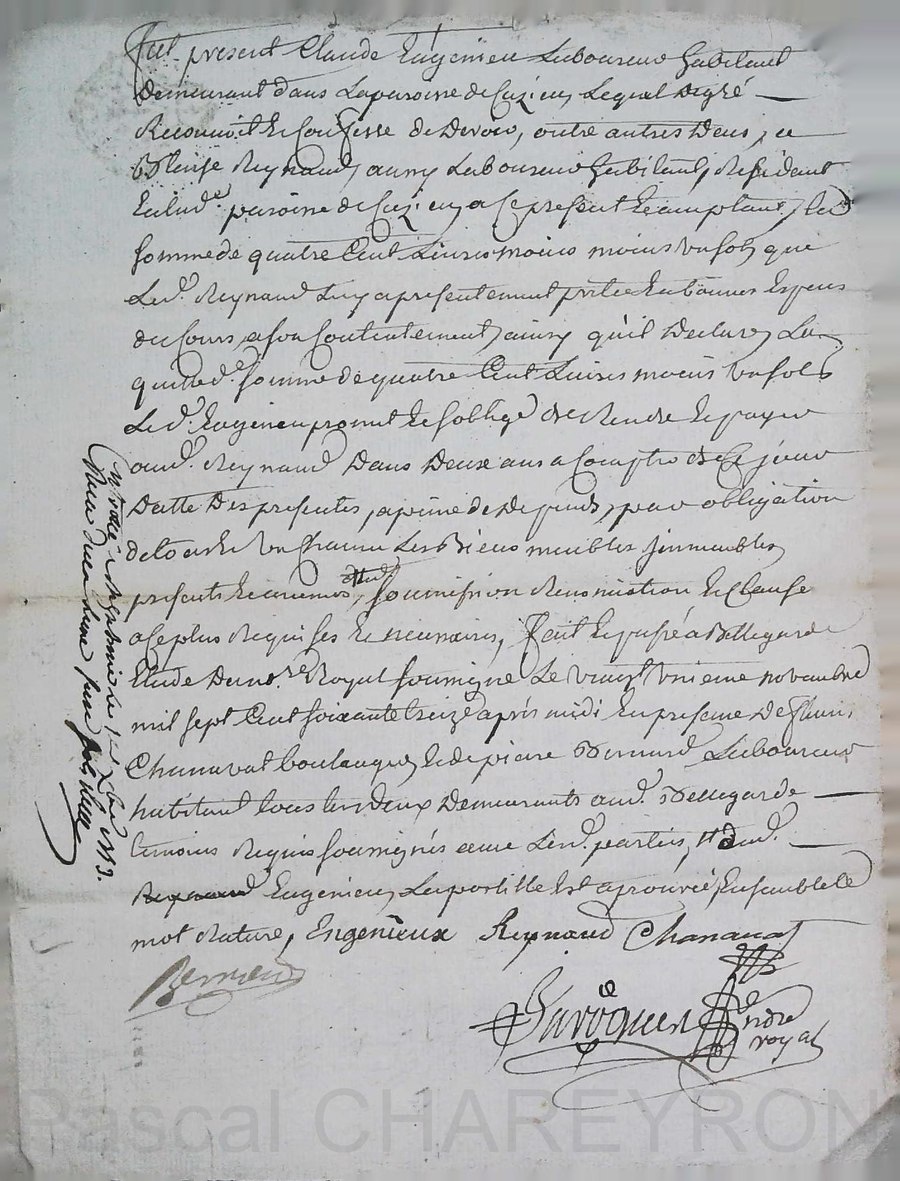 Fut present Claude Eugenieu Laboureur habitant
Demeurant dans La paroisse de Cuzieu, Lequel De gré
Reconnoit Et Confesse de Devoir, outre autres Deus, a
Blaise Reynaud, aussy Laboureur habitant, Residant
En lad.e paroisse de Cuzieu, a Ce present Et acceptant, la
somme de quatre Cent Livres moins moins un sol, que
Le d. Reynaud Luy a presentement prêtée En bonnes Especes
du Cours, a son Contentement, ainsy qu'il Declare, La
quelle d.e somme de quatre Cent Livres moins un sol
Le d. Eugenieu promet Et s'oblige de Rendre Et payer
aud. Reynaud Dans Deux ans a Compter de Ce jour
Datte Des presentes, a peine de Depends, par obligation
de tous Et un Chacun Les Biens meubles immeubles,
presents Et avenir, soumission Renonciation Et Clause
a Ce plus Requises Et necessaires, fait Et passé a Bellegarde
Etude Du no.re Royal soussigné Le vingt unieme novembre
mil sept Cent soixante treize après midi En presence De fleuri
Chanavat boulanger, Et de pierre Bernard Laboureur
habitant tous les deux Demeurants aud. Bellegarde
temoins Requis soussignés avec Les d. parties,
Reynaud Eugenieu, L'apostille Est aprouvée, Ensemble le
mot Rature, Engenieux Reynaud Chanavat
Bernard
ndre
royal
Controllé à St galmier le 1er Xbre 1773.
Reçu
Pascal CHAREYRON